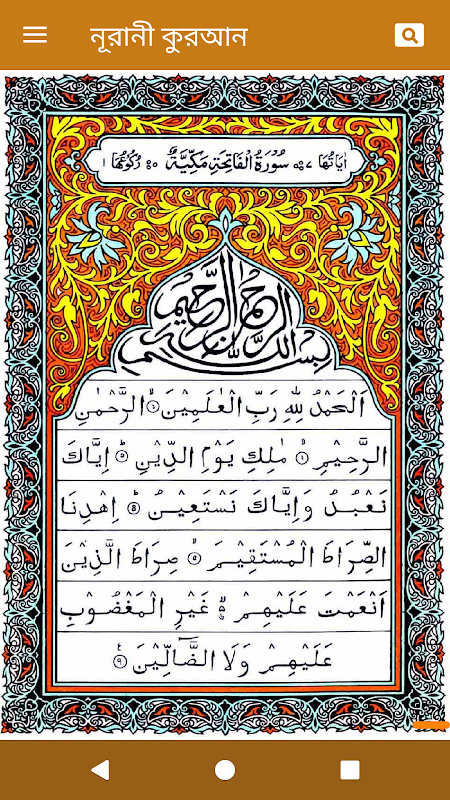 নূরানী কুরআন
اٰيَاتُهَا ٧ سُوْرَةُ الْفَاتِحَةِ مَكِّيَّةٌ ٥ رُكُوْعُهَا ١
بِسْمِ اللّٰهِ الرَّحْمٰنِ الرَّحِيْمِ
اَلْحَمْدُ لِلّٰهِ رَبِّ الْعٰلَمِيْنَ ۙ الرَّحْمٰنِ
الرَّحِيْمِ ۙ مٰلِكِ يَوْمِ الدِّيْنِ ؕ اِيَّاكَ
نَعْبُدُ وَاِيَّاكَ نَسْتَعِيْنُ ؕ اِهْدِنَا
الصِّرَاطَ الْمُسْتَقِيْمَ ۙ صِرَاطَ الَّذِيْنَ
اَنْعَمْتَ عَلَيْهِمْ ۙ غَيْرِ الْمَغْضُوْبِ
عَلَيْهِمْ وَلَا الضَّآلِّيْنَ